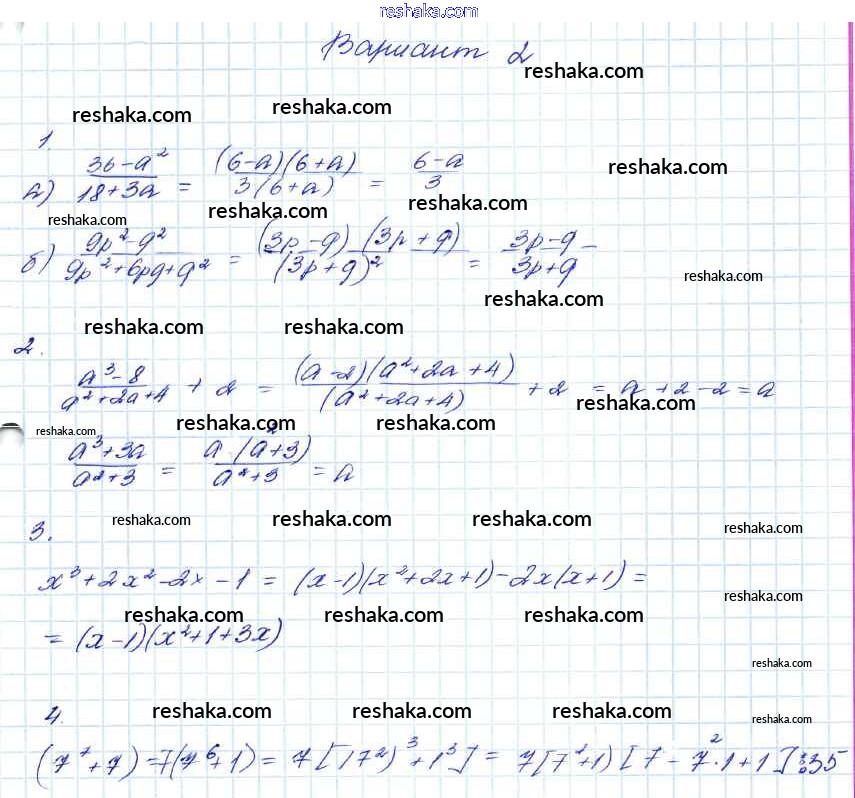 reshaka.com
Вариант 2
reshaka.com
reshaka.com reshaka.com
1.
а) (36-a²)/(18+3a) = ((6-a)(6+a))/(3(6+a)) = (6-a)/3
reshaka.com
reshaka.com reshaka.com reshaka.com
б) (9p²-q²)/(9p²+6pq+q²) = ((3p-q)(3p+q))/((3p+q)²) = (3p-q)/(3p+q) -
reshaka.com
reshaka.com
reshaka.com reshaka.com
2.
(a³-8)/(a²+2a+4) + 2 = ((a-2)(a²+2a+4))/((a²+2a+4)) + 2 = a+2-2 = a
reshaka.com
reshaka.com reshaka.com reshaka.com
(a³+3a)/(a²+3) = (a(a²+3))/(a²+3) = a
3.
reshaka.com reshaka.com reshaka.com reshaka.com
x³+2x²-2x-1 = (x-1)(x²+2x+1)-2x(x+1) =
reshaka.com
reshaka.com reshaka.com reshaka.com
= (x-1)(x²+1+3x)
reshaka.com
4.
reshaka.com reshaka.com reshaka.com reshaka.com
(7⁷+7) = 7(7⁶+1) = 7[(7²)³+1³] = 7[7²+1)[7-7²·1+1]⋮35